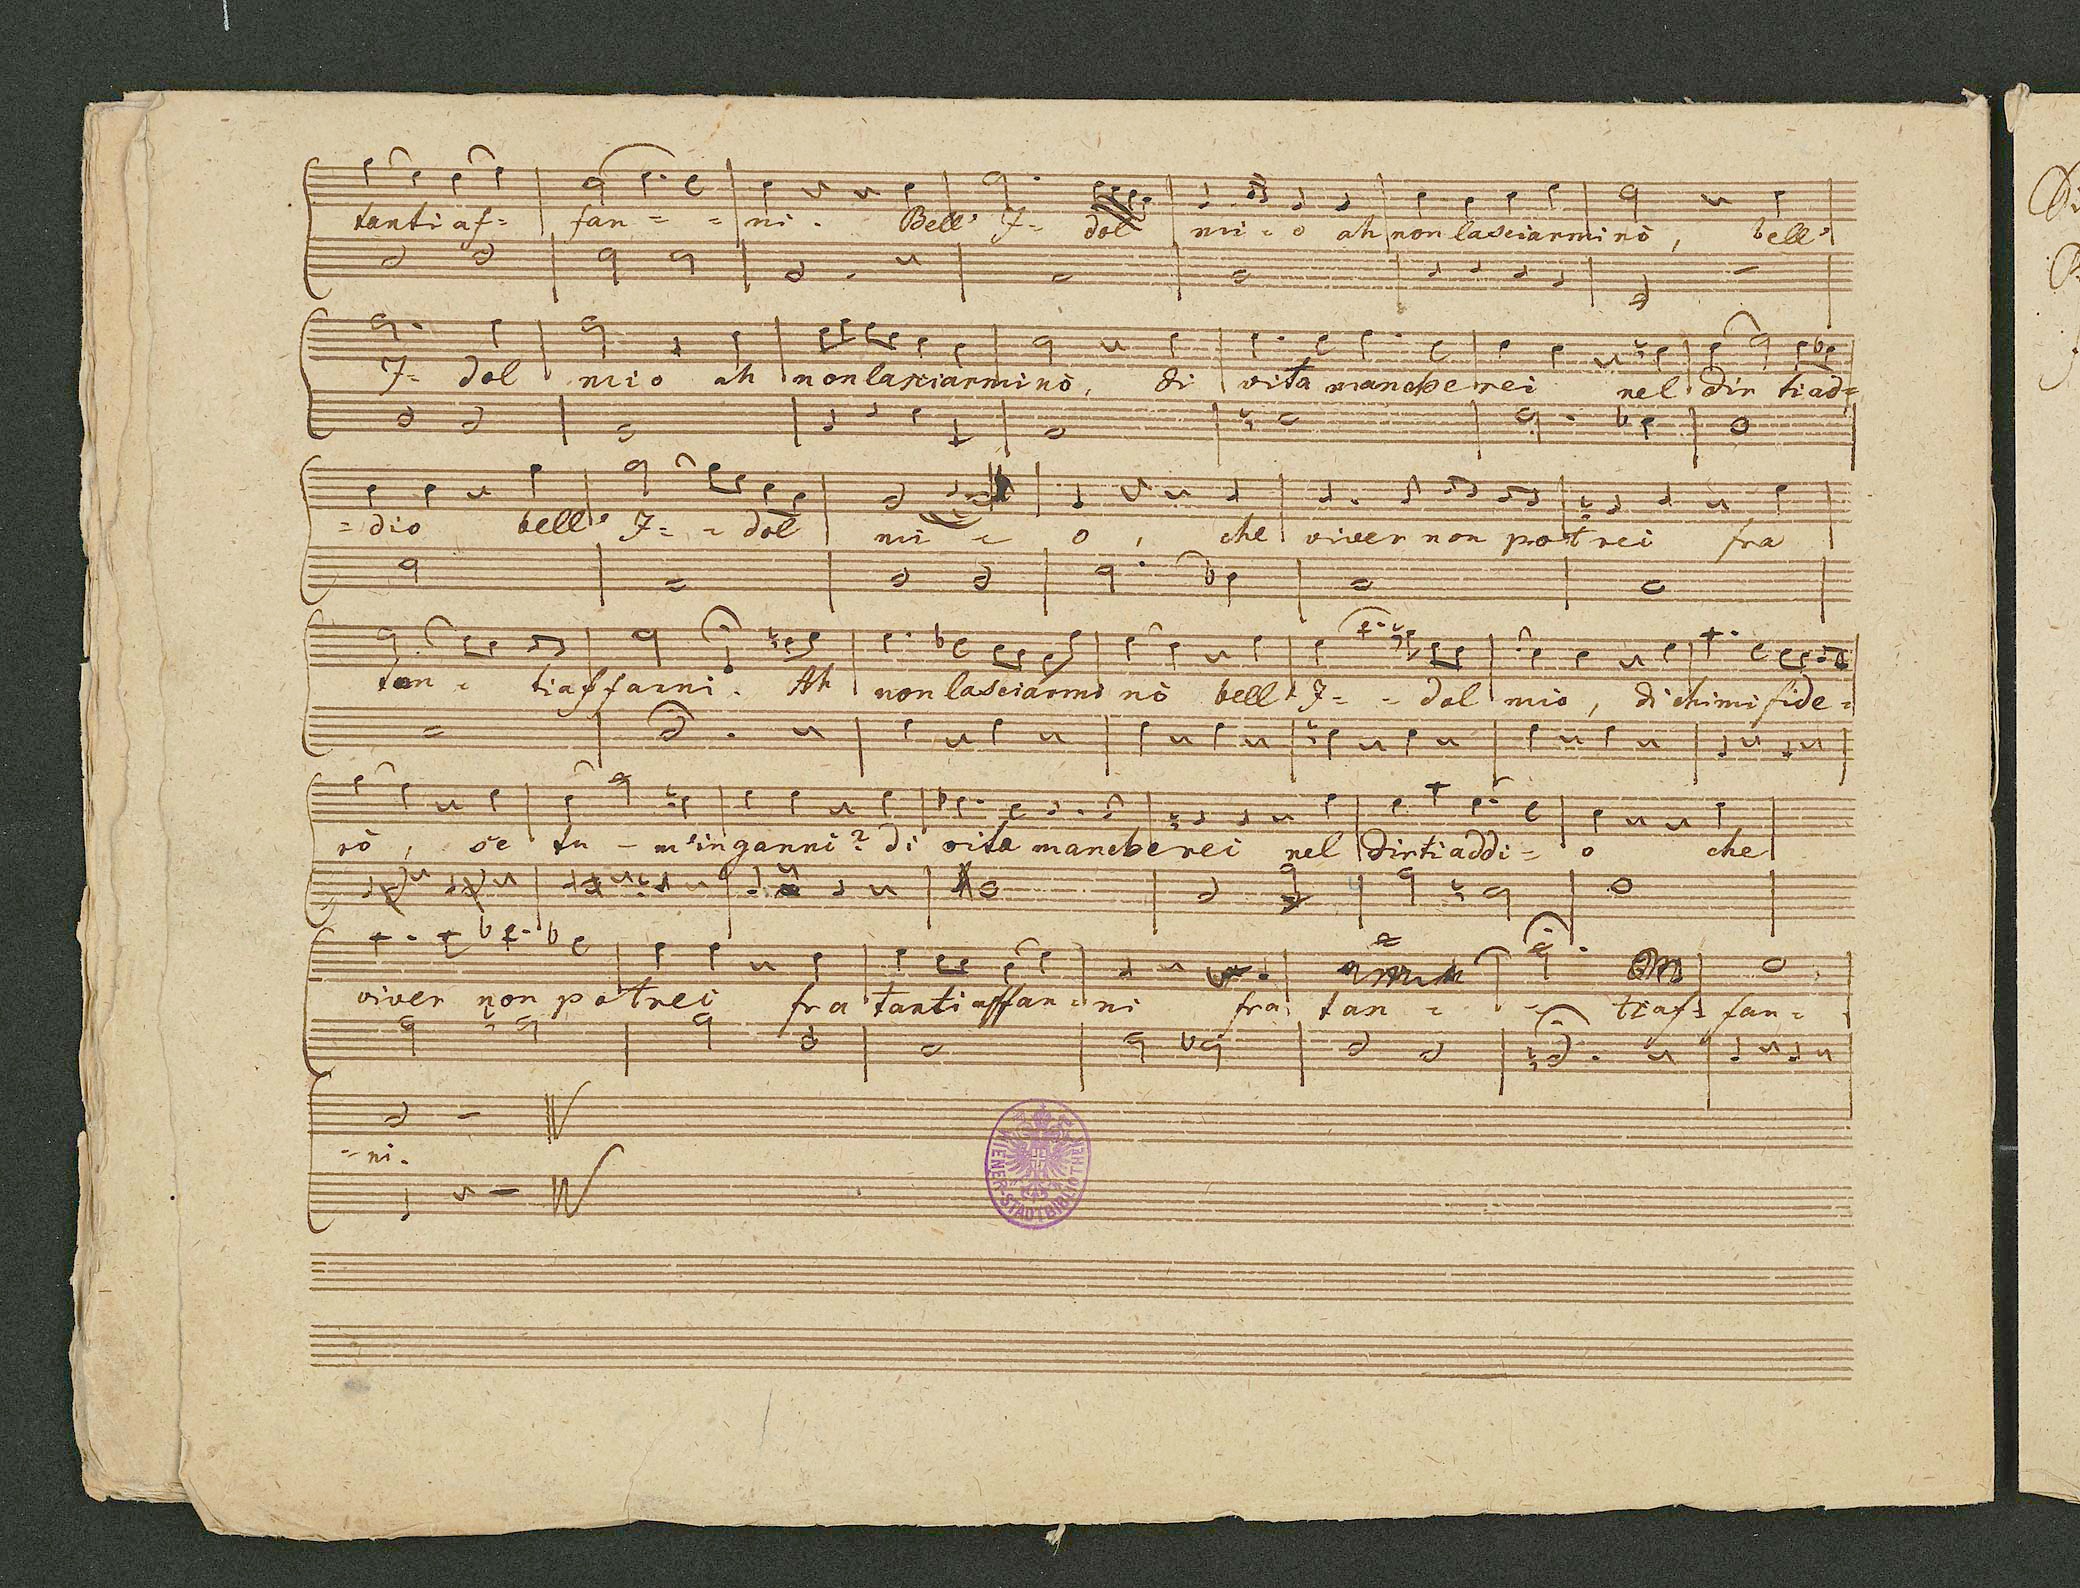 tanti af= fan - = ni. Bell' I= dol mi = o ah non lasciarmi nò, bell'
I= dol mio ah non lasciarmi nò, di vita mancherei nel dir ti ad=
= dio bell' I= = dol mi = o, che viver non potrei fra
tan = ti affanni. Ah non lasciarmi nò bell' I= = dol mio, di chi mi fide =
rò, se tu - m'inganni? di vita mancherei nel dirti addi = o che
viver non potrei fra tanti affan = ni fra tan = = ti af= fan =
= ni.
WIENER-STADTBIBLIOTHEK